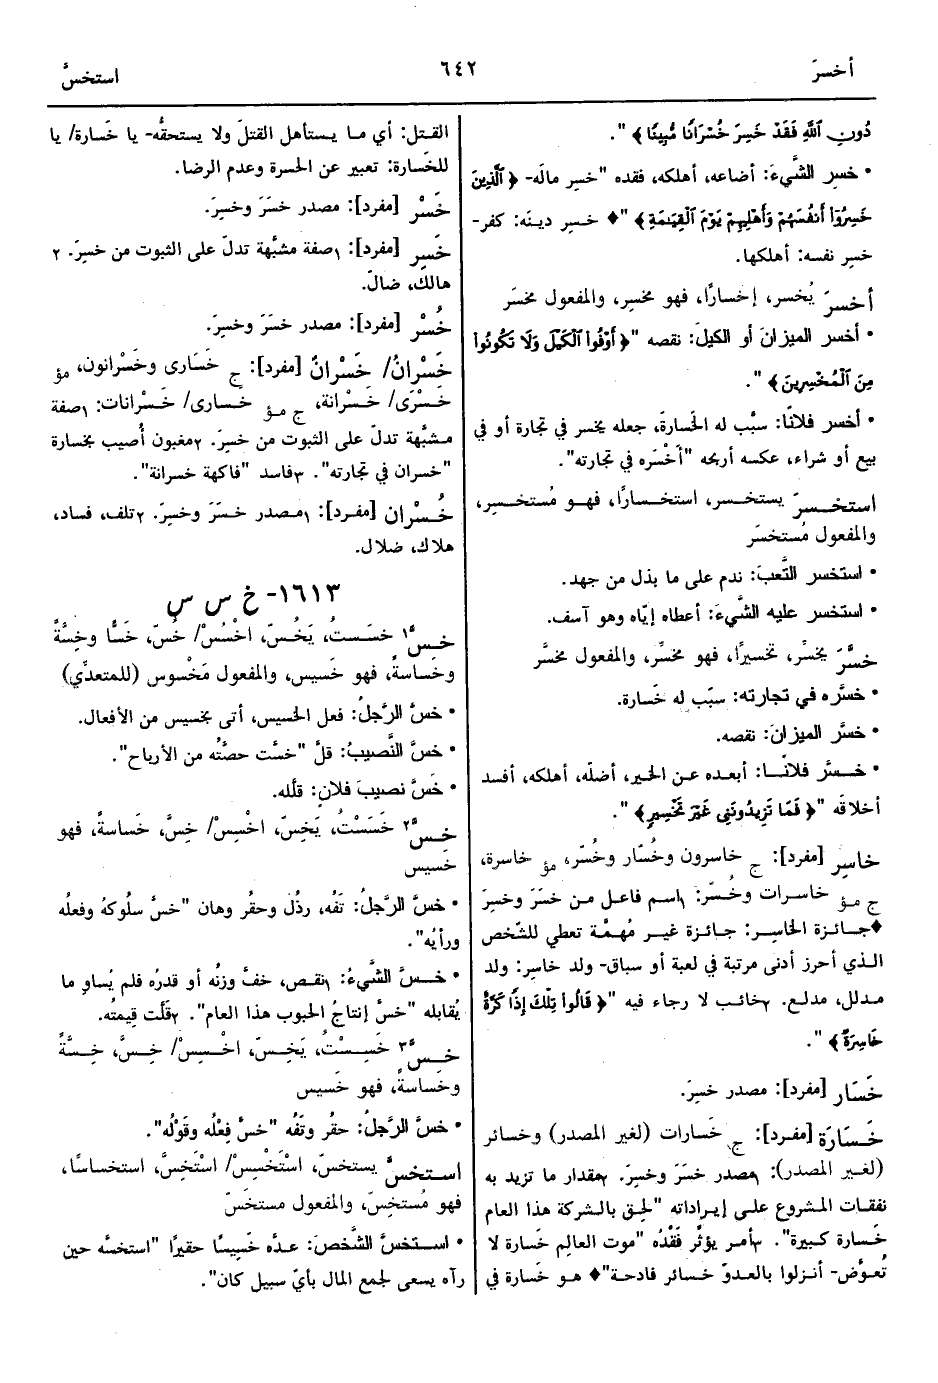 أخسرَ
٦٤٢
استخسَّ
دُونِ ٱللَّهِ فَقَدْ خَسِرَ خُسْرَانًا مُّبِينًا﴾ ".
• خسِر الشَّيءَ: أضاعه، أهلكه، فقده "خسِر مالَه- ﴿ٱلَّذِينَ
خَسِرُوٓا۟ أَنفُسَهُمْ وَأَهْلِيهِمْ يَوْمَ ٱلْقِيَٰمَةِ﴾ "♦ خسِر دينَه: كفر-
خسِر نفسه: أهلكها.
أخسرَ يُخسر، إخسارًا، فهو مخسِر، والمفعول مخسَر
• أخسر الميزانَ أو الكيلَ: نقصه "﴿أَوْفُوا۟ ٱلْكَيْلَ وَلَا تَكُونُوا۟
مِنَ ٱلْمُخْسِرِينَ﴾ ".
• أخسر فلانًا: سبَّب له الخسارةَ، جعله يخسر في تجارة أو في
بيع أو شراء، عكسه أربحه "أَخْسَره في تجارته".
استخسرَ يستخسر، استخسارًا، فهو مُستخسِر،
والمفعول مُستخسَر
• استخسر التَّعبَ: ندم على ما بذل من جهد.
• استخسر عليه الشَّيءَ: أعطاه إيّاه وهو آسف.
خسَّرَ يخسِّر، تخسيرًا، فهو مخسِّر، والمفعول مخسَّر
• خسَّره في تجارته: سبَّب له خَسارة.
• خسَّر الميزانَ: نقصه.
• خسَّر فلانًا: أبعده عن الخير، أضلّه، أهلكه، أفسد
أخلاقَه "﴿فَمَا تَزِيدُونَنِى غَيْرَ تَخْسِيرٍ﴾ ".
خاسِر [مفرد]: ج خاسرون وخُسّار وخُسّر، مؤ خاسرة،
ج مؤ خاسرات وخُسّر: ١اسم فاعل من خسَرَ وخسِرَ
♦جائزة الخاسِر: جائزة غير مُهمَّة تعطي للشّخص
الذي أحرز أدنى مرتبة في لعبة أو سباق- ولد خاسِر: ولد
مدلل، مدلع. ٢خائب لا رجاء فيه "﴿قَالُوا۟ تِلْكَ إِذًا كَرَّةٌ
خَاسِرَةٌ﴾ ".
خَسَار [مفرد]: مصدر خسِرَ.
خَسَارَة [مفرد]: ج خَسارات (لغير المصدر) وخسائر
(لغير المصدر): ١مصدر خسَرَ وخسِرَ. ٢مقدار ما تزيد به
نفقات المشروع على إيراداته "لحِق بالشركة هذا العام
خَسارة كبيرة". ٣أمر يؤثِّر فَقْدُه "موت العالِم خَسارة لا
تُعوَّض- أنزلوا بالعدوّ خسائر فادحة"♦ هو خَسارة في
القتل: أي ما يستأهل القتلَ ولا يستحقُّه- يا خَسارة/ يا
للخَسارة: تعبير عن الحسرة وعدم الرضا.
خَسْر [مفرد]: مصدر خسَرَ وخسِرَ.
خَسِر [مفرد]: ١صفة مشبَّهة تدلّ على الثبوت من خسِرَ. ٢
هالك، ضالّ.
خُسْر [مفرد]: مصدر خسَرَ وخسِرَ.
خَسْرانُ/ خَسْرانٌ [مفرد]: ج خَسَارى وخَسْرانون، مؤ
خَسْرَى/ خَسْرانة، ج مؤ خسارى/ خَسْرانات: ١صفة
مشبَّهة تدلّ على الثبوت من خسِرَ. ٢مغبون أُصيب بخسارة
"خسران في تجارته". ٣فاسد "فاكهة خسرانة".
خُسْران [مفرد]: ١مصدر خسَرَ وخسِرَ. ٢تلف، فساد،
هلاك، ضلال.
١٦١٣- خ س س
خسَّ١ خَسَستُ، يَخُسّ، اخْسُسْ/ خُسّ، خَسًّا وخِسَّةً
وخَساسةً، فهو خَسيس، والمفعول مَخْسوس (للمتعدِّي)
• خسَّ الرَّجلُ: فعل الخسيس، أتى بخسيس من الأفعال.
• خسَّ النَّصيبُ: قلَّ "خسَّت حصَّتُه من الأرباح".
• خَسَّ نصيبَ فلانٍ: قلَّله.
خسَّ٢ خَسَسْتُ، يَخِسّ، اخْسِسْ/ خِسَّ، خَساسةً، فهو
خسيس
• خسَّ الرَّجلُ: تَفُه، رذُل وحقُر وهان "خسَّ سلُوكهُ وفعلُه
ورأيُه".
• خسَّ الشَّيءُ: ١نقص، خفَّ وزنُه أو قدرُه فلم يُساوِ ما
يُقابله "خسَّ إنتاجُ الحبوب هذا العام". ٢قَلَّت قيمتُه.
خسَّ٣ خَسِسْتُ، يَخِسّ، اخْسِسْ/ خِسَّ، خِسَّةً
وخَساسةً، فهو خَسيس
• خسَّ الرَّجلُ: حقُر وتَفُه "خسَّ فِعْلُه وقَوْلُه".
استخسَّ يستخسّ، اسْتَخْسِسْ/ اسْتَخِسَّ، استخساسًا،
فهو مُستخِسّ، والمفعول مستخَسّ
• استخسَّ الشَّخصَ: عدّه خَسيسًا حقيرًا "استخسَّه حين
رآه يسعى لجمع المال بأيّ سبيل كان".